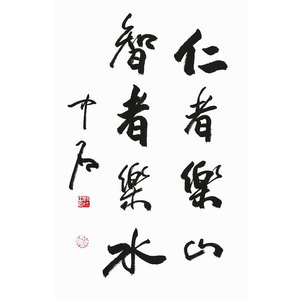 仁者樂山
智者樂水
中石